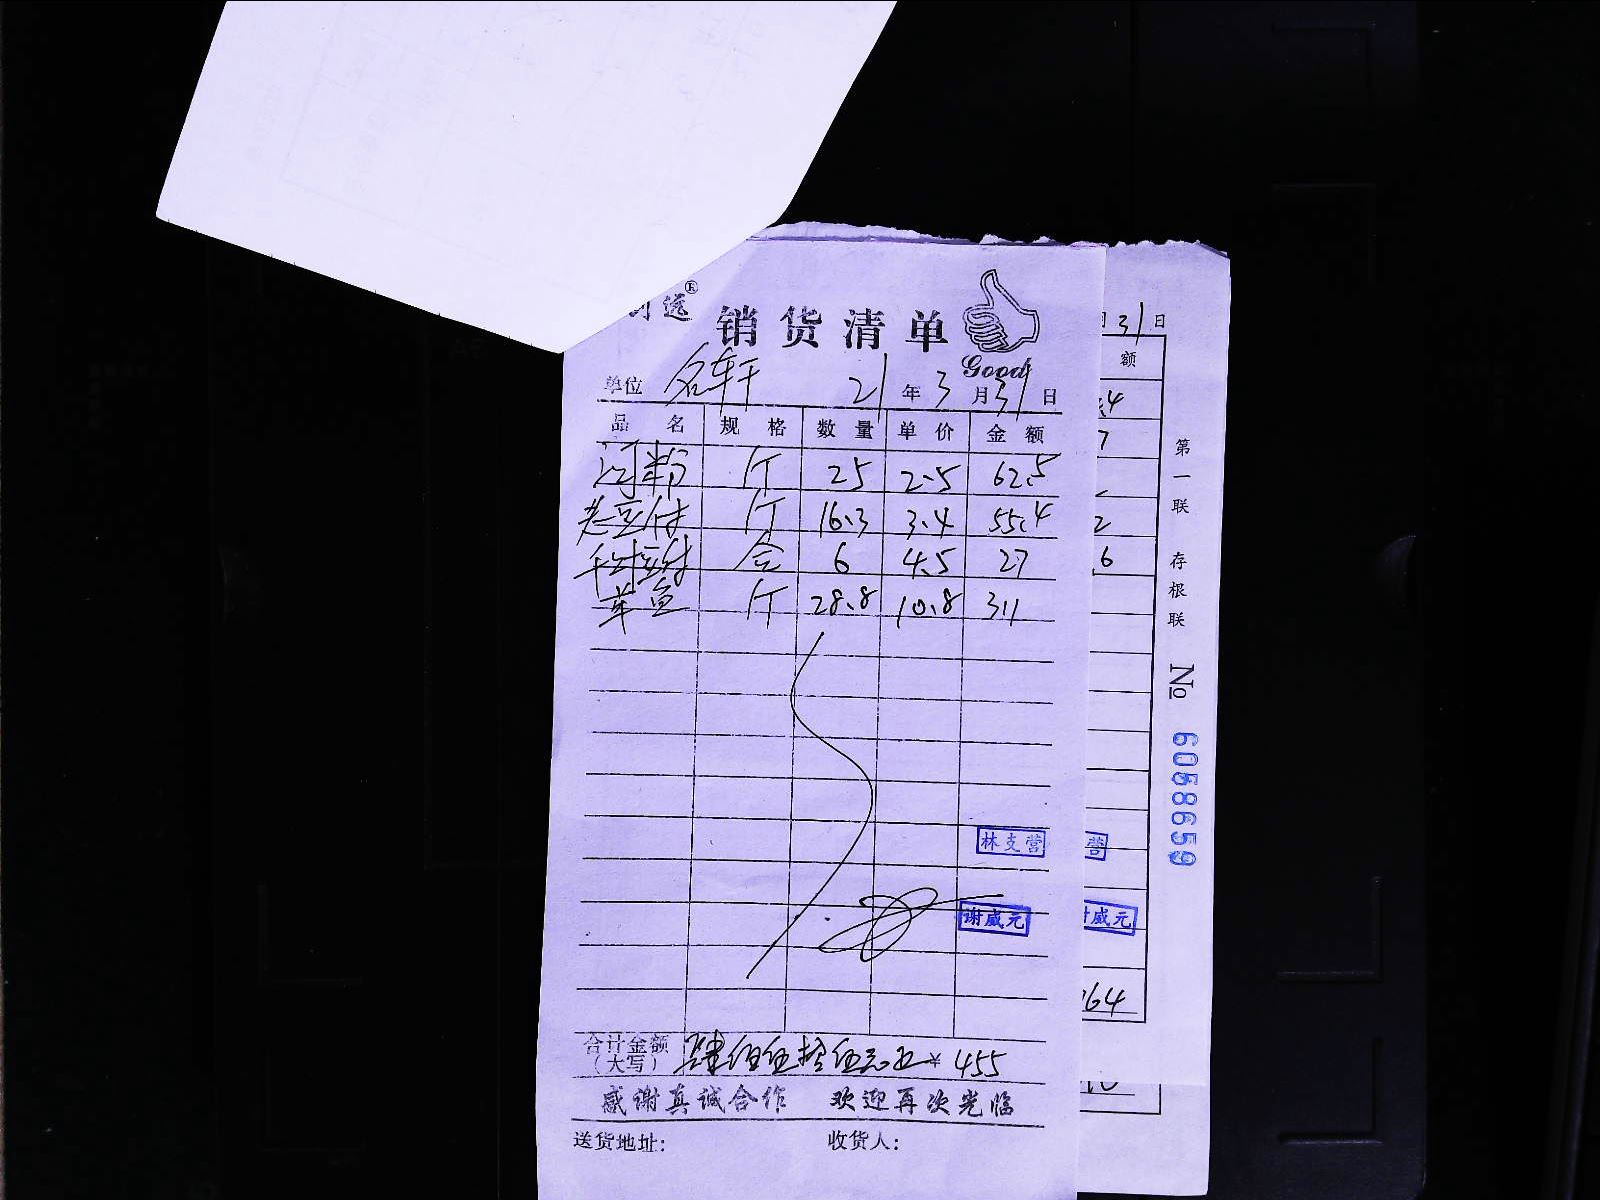 送®
销货清单
Good
单位 名轩 21年3月31日
品名 规格 数量 单价 金额
河粉 斤 25 2.5 62.5
老豆付 斤 16.3 3.4 55.4
千叶豆付 合 6 4.5 27
草鱼 斤 28.8 10.8 311
林支营
谢威元
合计金额(大写) 肆佰伍拾伍元正 ¥ 455
感谢真诚合作 欢迎再次光临
送货地址: 收货人:
31日
额
.4
7
2
.6
营
威元
64
第一联 存根联
No 6058659